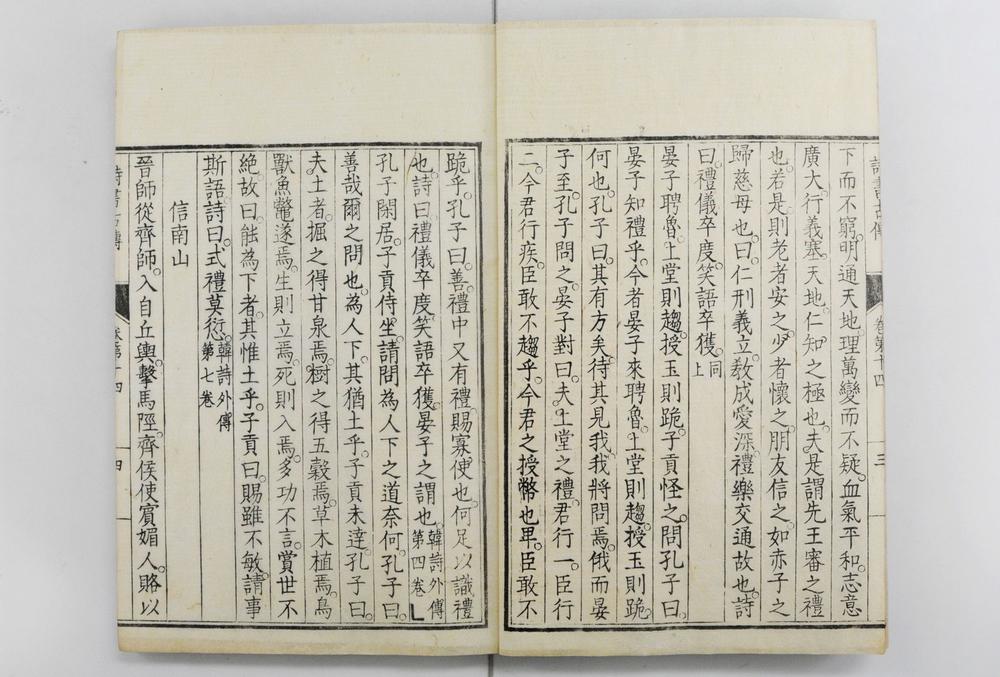 詩書古傳 卷第十四 三
下而不窮。明通天地。理萬變而不疑。血氣平和。志意
廣大。行義塞天地。仁知之極也。夫是謂先王審之禮
也。若是則老者安之。少者懷之。朋友信之。如赤子之
歸慈母也。曰。仁刑義立。敎成愛深。禮樂交通故也。詩
曰。禮儀卒度。笑語卒獲。同上
晏子聘魯。上堂則趨。授玉則跪。子貢怪之。問孔子曰。
晏子知禮乎。今者晏子來聘魯。上堂則趨。授玉則跪。
何也。孔子曰。其有方矣。待其見我。我將問焉。俄而晏
子至。孔子問之。晏子對曰。夫上堂之禮。君行一。臣行
二。今君行疾。臣敢不趨乎。今君之授幣也卑。臣敢不
跪乎。孔子曰。善。禮中又有禮。賜寡使也。何足以識禮
也。詩曰。禮儀卒度。笑語卒獲。晏子之謂也。韓詩外傳第四卷
孔子閑居。子貢侍坐。請問爲人下之道奈何。孔子曰。
善哉爾之問也。為人下。其猶土乎。子貢未達。孔子曰。
夫土者。掘之得甘泉焉。樹之得五穀焉。草木植焉。鳥
獸魚鼈遂焉。生則立焉。死則入焉。多功不言。賞世不
絶。故曰。能為下者。其惟土乎。子貢曰。賜雖不敏。請事
斯語。詩曰。式禮莫愆。韓詩外傳第七卷
信南山
晉師從齊師。入自丘輿。擊馬陘。齊侯使賓媚人。賂以
詩書古傳 卷第十四 四